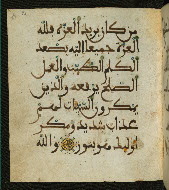 من كان يريد العزة فلله
العزة جميعا اليه يصعد
الكلم الطيب والعمل
الصلح يرفعه والذين
يمكرون السيات لهم
عذاب شديد ومكر
اوليك هو يبور والله